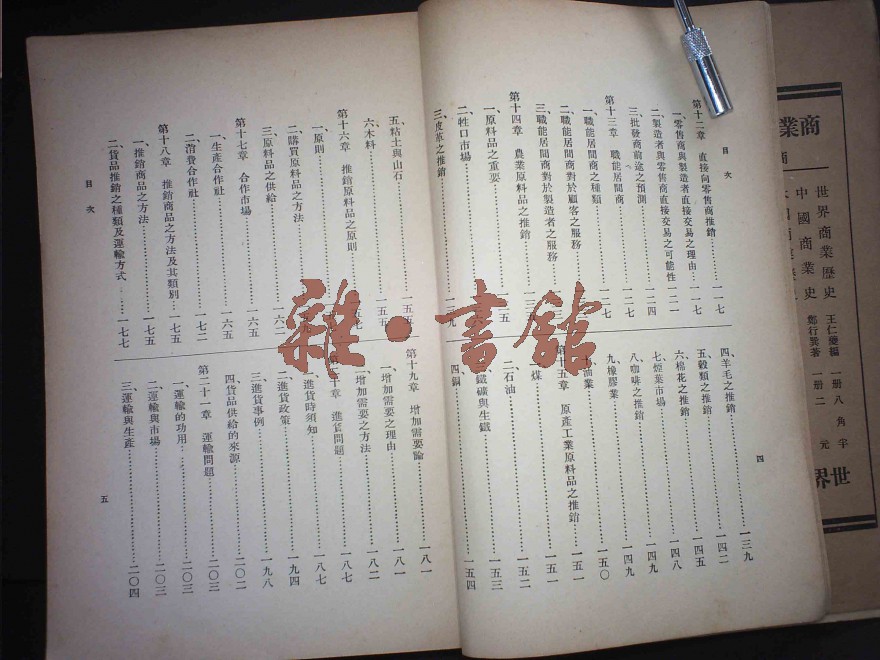 目次
第十二章 直接向零售商推銷……一一七
一、零售商與製造者直接交易之理由……一一七
二、製造者與零售商直接交易之可能性……一二一
三、批發商前途之預測……一二四
第十三章 職能居間商……一二七
一、職能居間商之種類……一二七
二、職能居間商對於顧客之服務
三、職能居間商對於製造者之服務
第十四章 農業原料品之推銷
一、原料品之重要
二、牲口市場
三、皮革之推銷
四、羊毛之推銷……一三九
五、穀類之推銷……一四二
六、棉花之推銷……一四五
七、煙葉市場……一四八
八、咖啡之推銷……一四九
九、橡膠業……一四九
油業……一五〇
第十五章 原產工業原料品之推銷……一五一
一、煤……一五一
二、石油……一五二
三、鐵礦與生鐵……一五三
四、銅……一五四
四
五、粘土與山石……一五五
六、木料……一五五
第十六章 推銷原料品之原則
一、原則
二、購買原料品之方法
三、原料品之供給……一六二
第十七章 合作市場……一六五
一、生產合作社……一六五
二、消費合作社……一七二
第十八章 推銷商品之方法及其類別……一七五
一、推銷商品之方法……一七五
二、貨品推銷之種類及運輸方式……一七七
目次
第十九章 增加需要論……一八一
一、增加需要之理由……一八一
二、增加需要之方法……一八二
第二十章 進貨問題……一八七
一、進貨時須知……一八七
二、進貨政策……一九四
三、進貨事例……一九八
四、貨品供給的來源……二〇二
第二十一章 運輸問題……二〇三
一、運輸的功用……二〇三
二、運輸與市場……二〇三
三、運輸與生產……二〇四
五
商業
世界商業歷史 王仁夔編 一册八角半
中國商業史 鄭行巽著 一册二元
世界
雜·書館